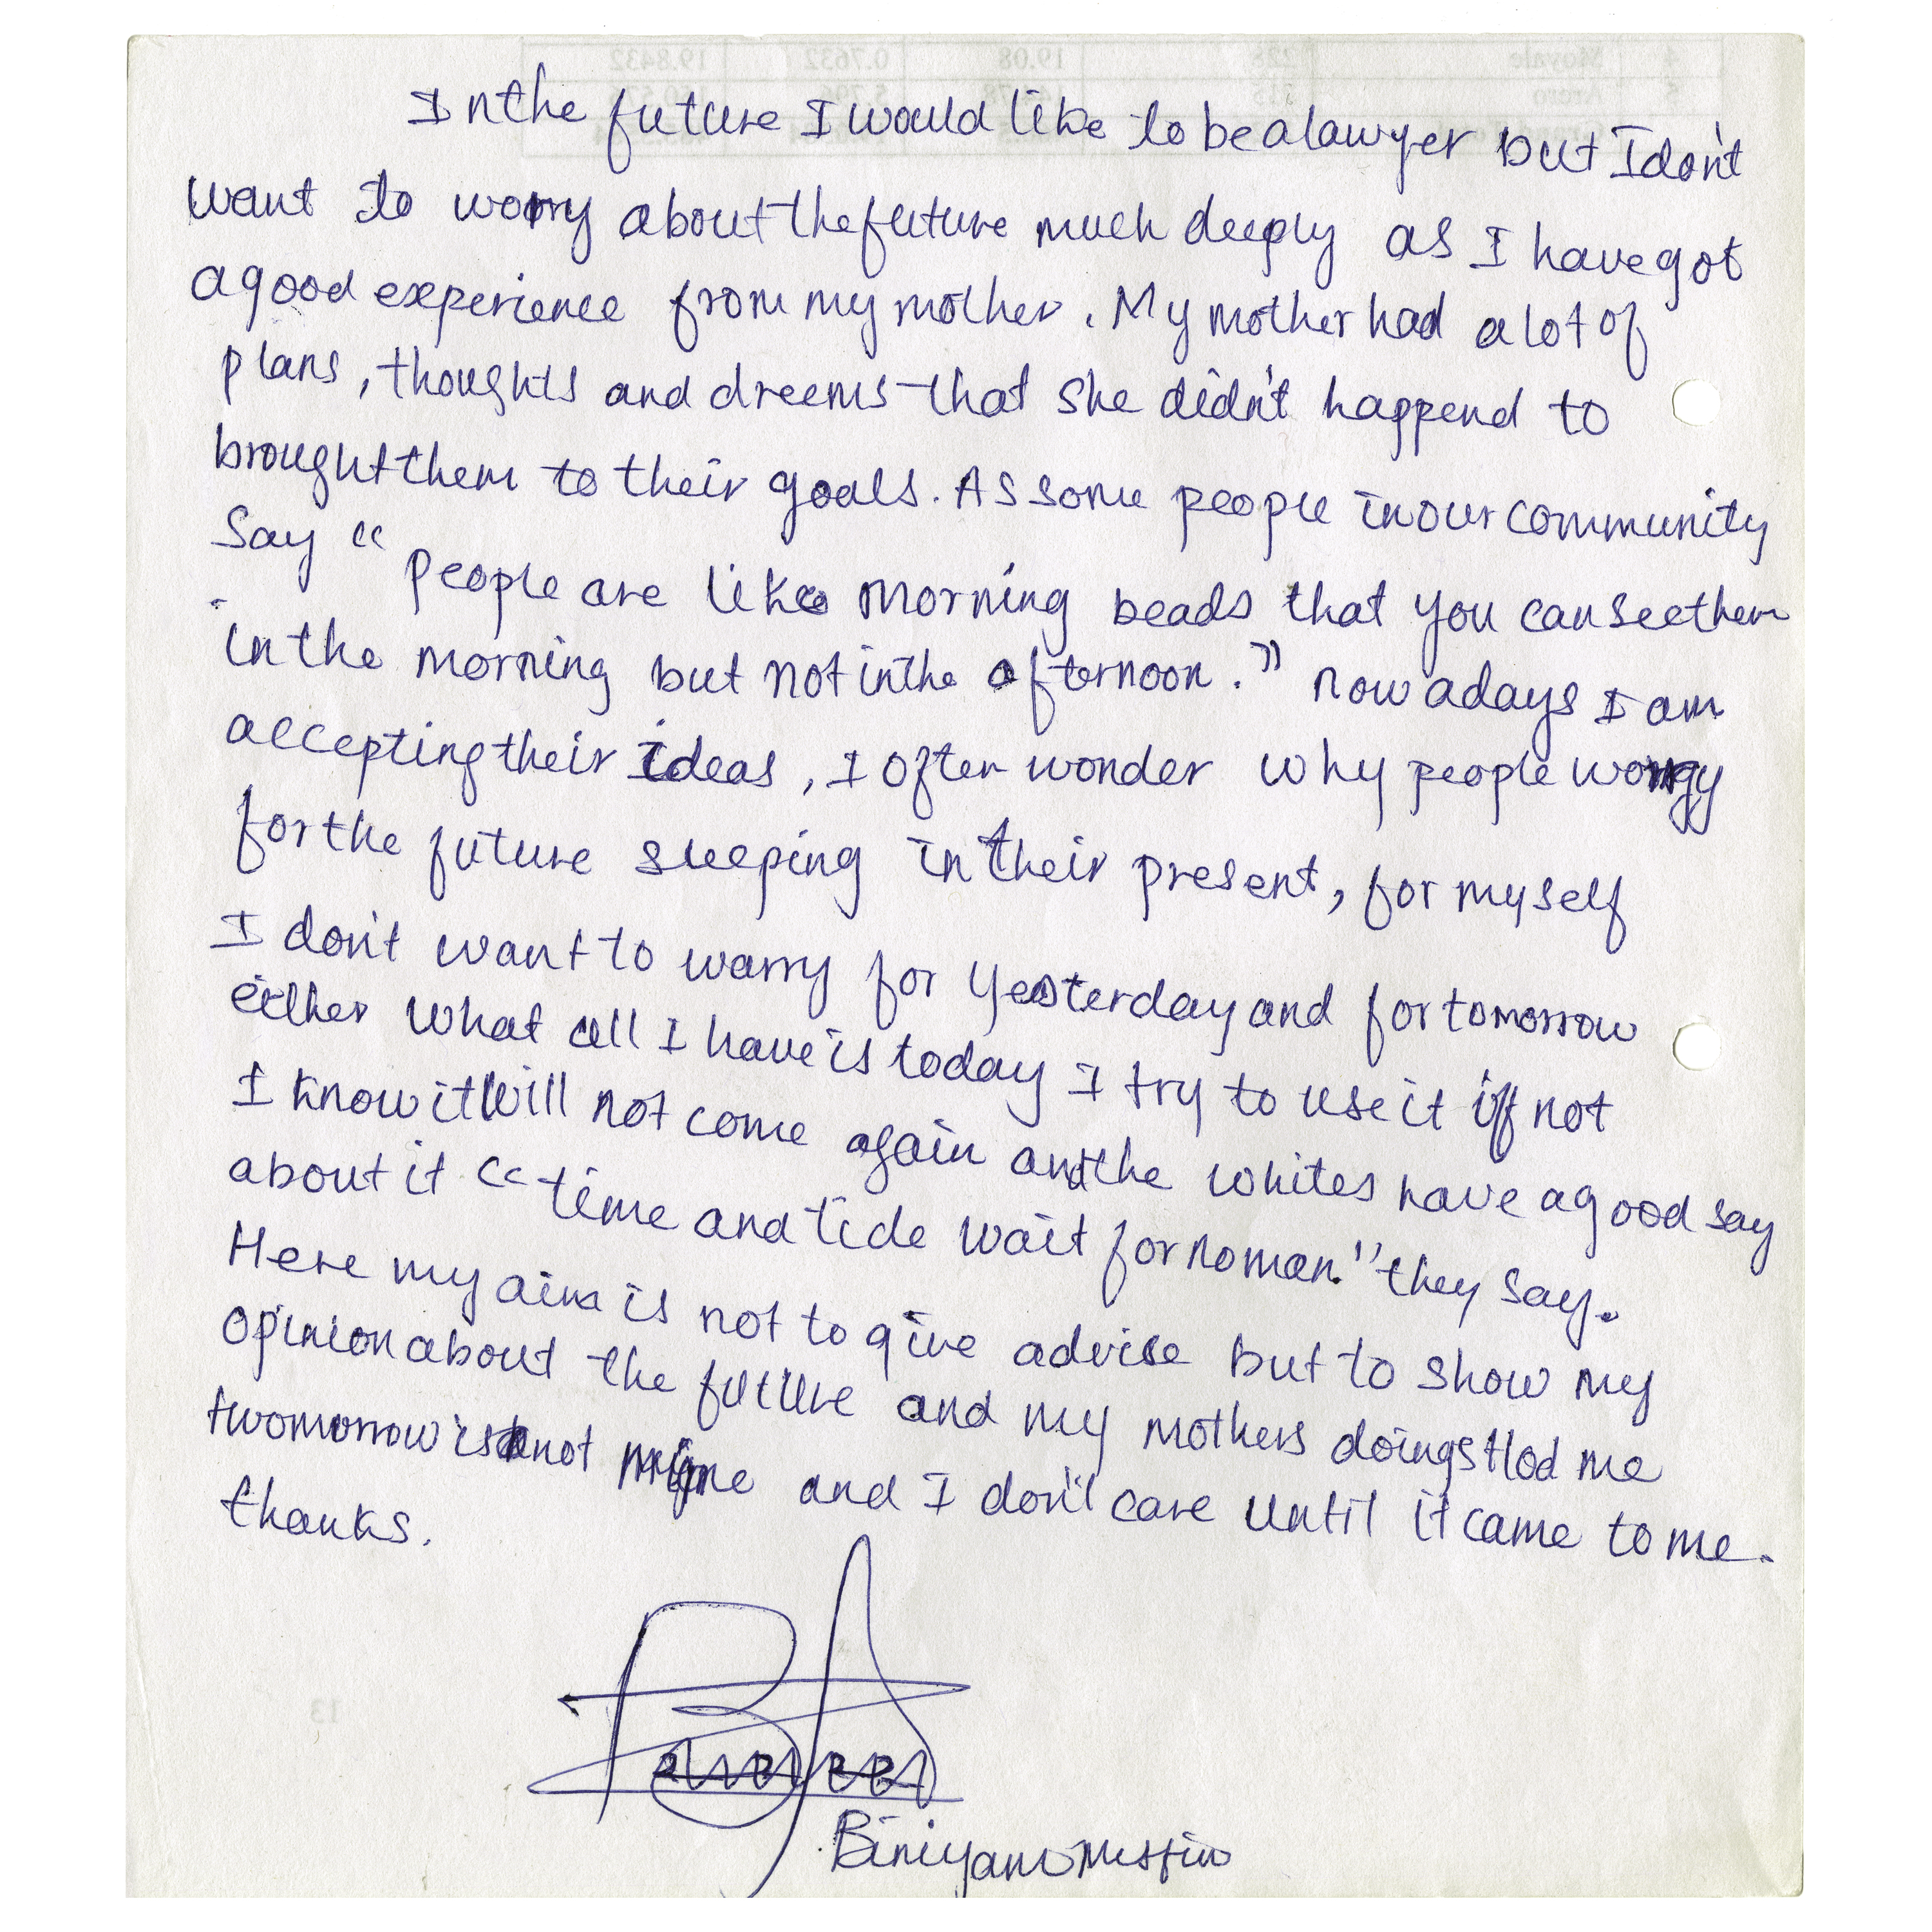 In the future I would like to be a lawyer but I don't
want to worry about the future much deeply as I have got
a good experience from my mother. My mother had a lot of
plans, thoughts and dreems that she didn't happend to
brought them to their goals. As some people in our community
say “ people are like morning beads that you can see them
in the morning but not in the afternoon.” now adays I am
accepting their ideas, I often wonder why people worry
for the future sleeping in their present, for my self
I don't want to warry for yesterday and for tomorrow
either what all I have is today I try to use it if not
I know it will not come again and the whites have a good say
about it “time and tide wait for no man.” they say.
Here my aim is not to give advise but to show my
opinion about the future and my mothers doings tlod me
twomorrow is not mine and I don't care until it came to me.
thanks.
Biniyam Mesfin
4 Moyale 228 19.08 0.7632 19.8432
5 Arero 5.796
13